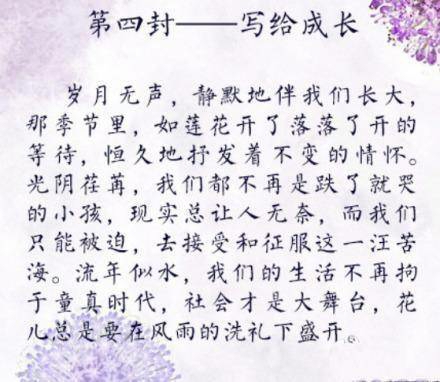 第四封——写给成长
岁月无声，静默地伴我们长大，
那季节里，如莲花开了落落了开的
等待，恒久地抒发着不变的情怀。
光阴荏苒，我们都不再是跌了就哭
的小孩，现实总让人无奈，而我们
只能被迫，去接受和征服这一汪苦
海。流年似水，我们的生活不再拘
于童真时代，社会才是大舞台，花
儿总是要在风雨的洗礼下盛开。